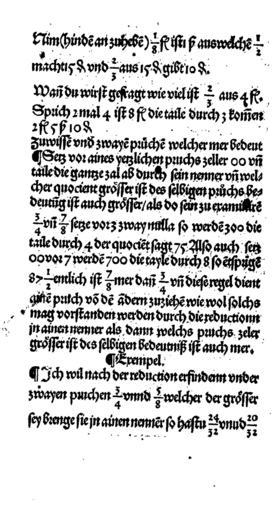 Nim(hindẽ an zuhebẽ) 1/8 fl ist 1 ß aus welchẽ 1/2
macht 15 ₰ vnd 2/3 aus 15 ₰ gibt 10 ₰
Wañ du wirst gefragt wie viel ist 2/3 aus 4 fl.
Sprich 2 mal 4 ist 8 fl die taile durch 3 komen
2 fl 5 ß 10 ₰
Zuwissẽ vnd zwayẽ prüchẽ welcher mer bedeut
¶ Setz vor aines yetzlichen pruchs zeller 00 vñ
taile die gantze zal ab durch sein nenner vñ wel-
cher quocient grösser ist des selbigen prüchs be-
deutũg ist auch grösser/als do sein zu examinirẽ
3/4 vñ 7/8 setze vor 3 zway nulla so werdẽ 300 die
taile durch 4 der quociẽt sagt 75. Also auch setz
00 vor 7 werdẽ 700 die tayle durch 8 so ẽtspringẽ
87 1/2 entlich ist 7/8 mer dañ 3/4 vñ diese regel dient
ainẽ pruch võ dẽ ãdern zuziehẽ wie wol solchs
mag vorstanden werden durch die reductionn
in ainen nenner als dann welchs pruchs zeler
grösser ist des selbigen bedeutniß ist auch mer.
¶ Exempel.
¶ Ich wil nach der reduction erfindenn vnder
zwayen pruchen 3/4 vnnd 5/8 welcher der grösser
sey brenge sie in ainen nennẽr so hastu 24/32 vnnd 20/32